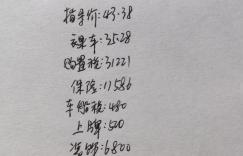 指导价:43.38
裸车:3528
购置税:31221
保险:11586
车船税:480
上牌:520
:6800